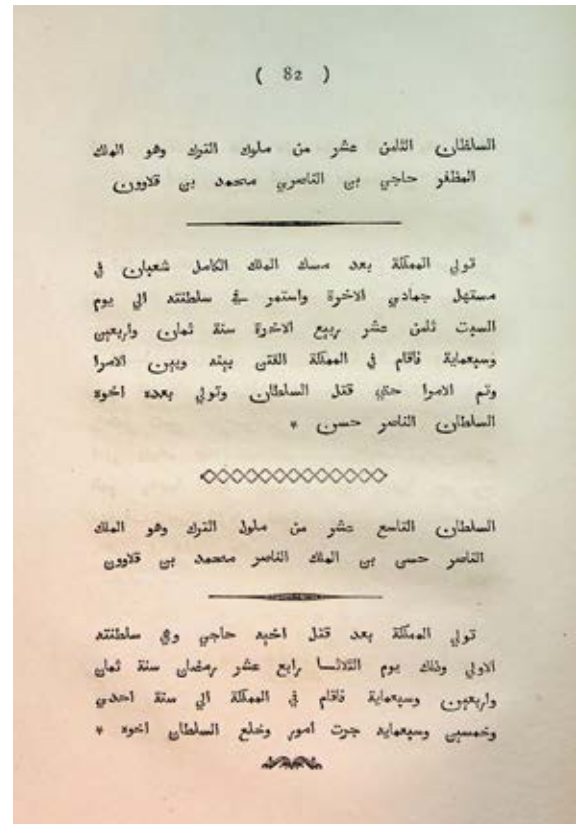 ( 82 )
السلطان الثامن عشر من ملوك الترك وهو الملك
المظفر حاجي بن الناصري محمد بن قلاوون
تولي المملكة بعد مسك الملك الكامل شعبان في
مستهل جمادي الاخرة واستمر في سلطنته الي يوم
السبت ثامن عشر ربيع الاخرة سنة ثمان واربعين
وسبعماية فاقام في المملكة الفتن بينه وبين الامرا
وتم الامرا حتي قتل السلطان وتولي بعده اخوه
السلطان الناصر حسن *
السلطان التاسع عشر من ملوك الترك وهو الملك
الناصر حسن بن الملك الناصر محمد بن قلاوون
تولي المملكة بعد قتل اخيه حاجي وهي سلطنته
الاولي وذلك يوم الثلاثا رابع عشر رمضان سنة ثمان
واربعين وسبعماية فاقام في المملكة الي سنة احدي
وخمسين وسبعمايه جرت امور وخلع السلطان اخوه *